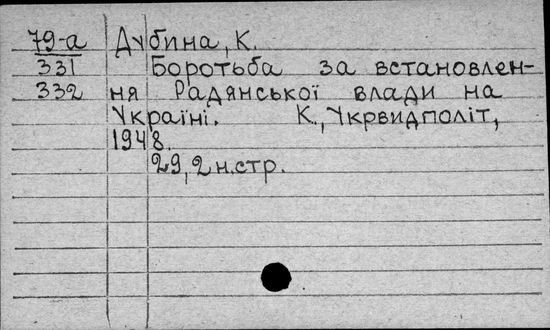 79-а Дубина, К.
331 Боротьба за встановлен-
332 ня Радянської влади на
Україні. К., Укрвидполіт,
1948.
29, 2 н.стр.